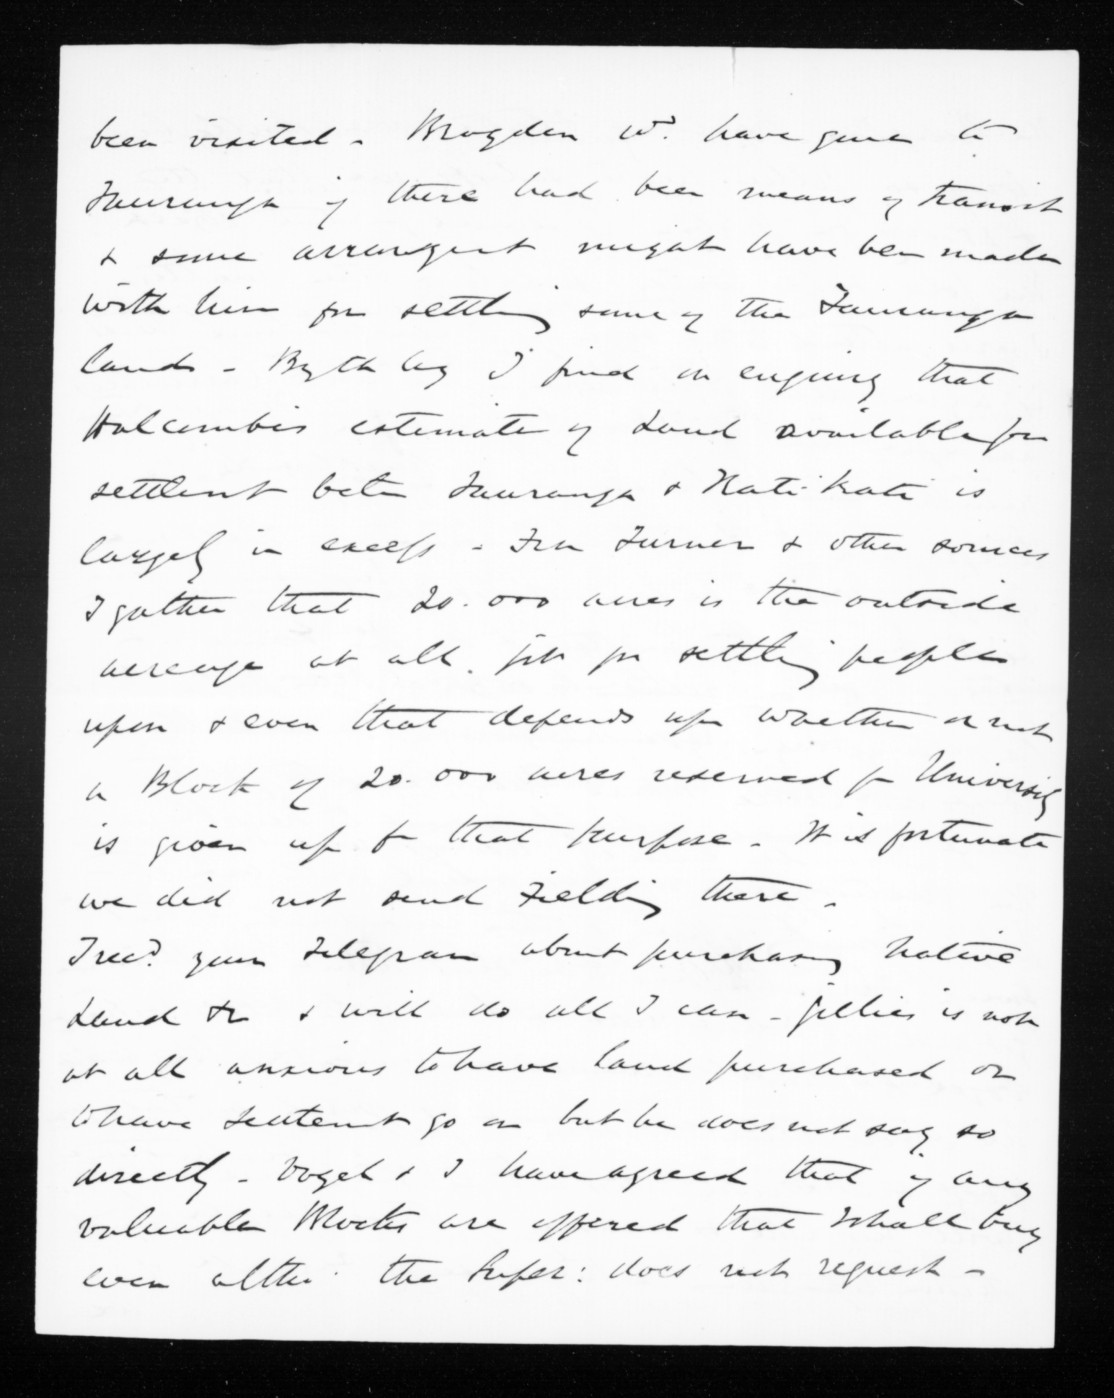 been visited - Brogden wd. have gone to
Tauranga if there had been means of transit
& some arrangent might have been made
with him for settling some of the Tauranga
lands - By the by I find on enquiry that
Halcombe's estimate of land available for
settlent betn Tauranga & Kati-Kati is
largely in excess - Frm Turner & other sources
I gather that 20.000 acres is the outside
acreage at all fit for settling people
upon & even that depends upn whether or not
a Block of 20.000 acres reserved for University
is given up for that purpose - It is fortunate
we did not send Fielding there -
I recd. your telegram about purchasing native
Land &c & will do all I can - Gillies is not
at all anxious to have land purchased or
to have settlemt go on but he does not say so
directly - Vogel & I have agreed that if any
valuable Blocks are offered that I shall buy
even altho' the Super: does not request -